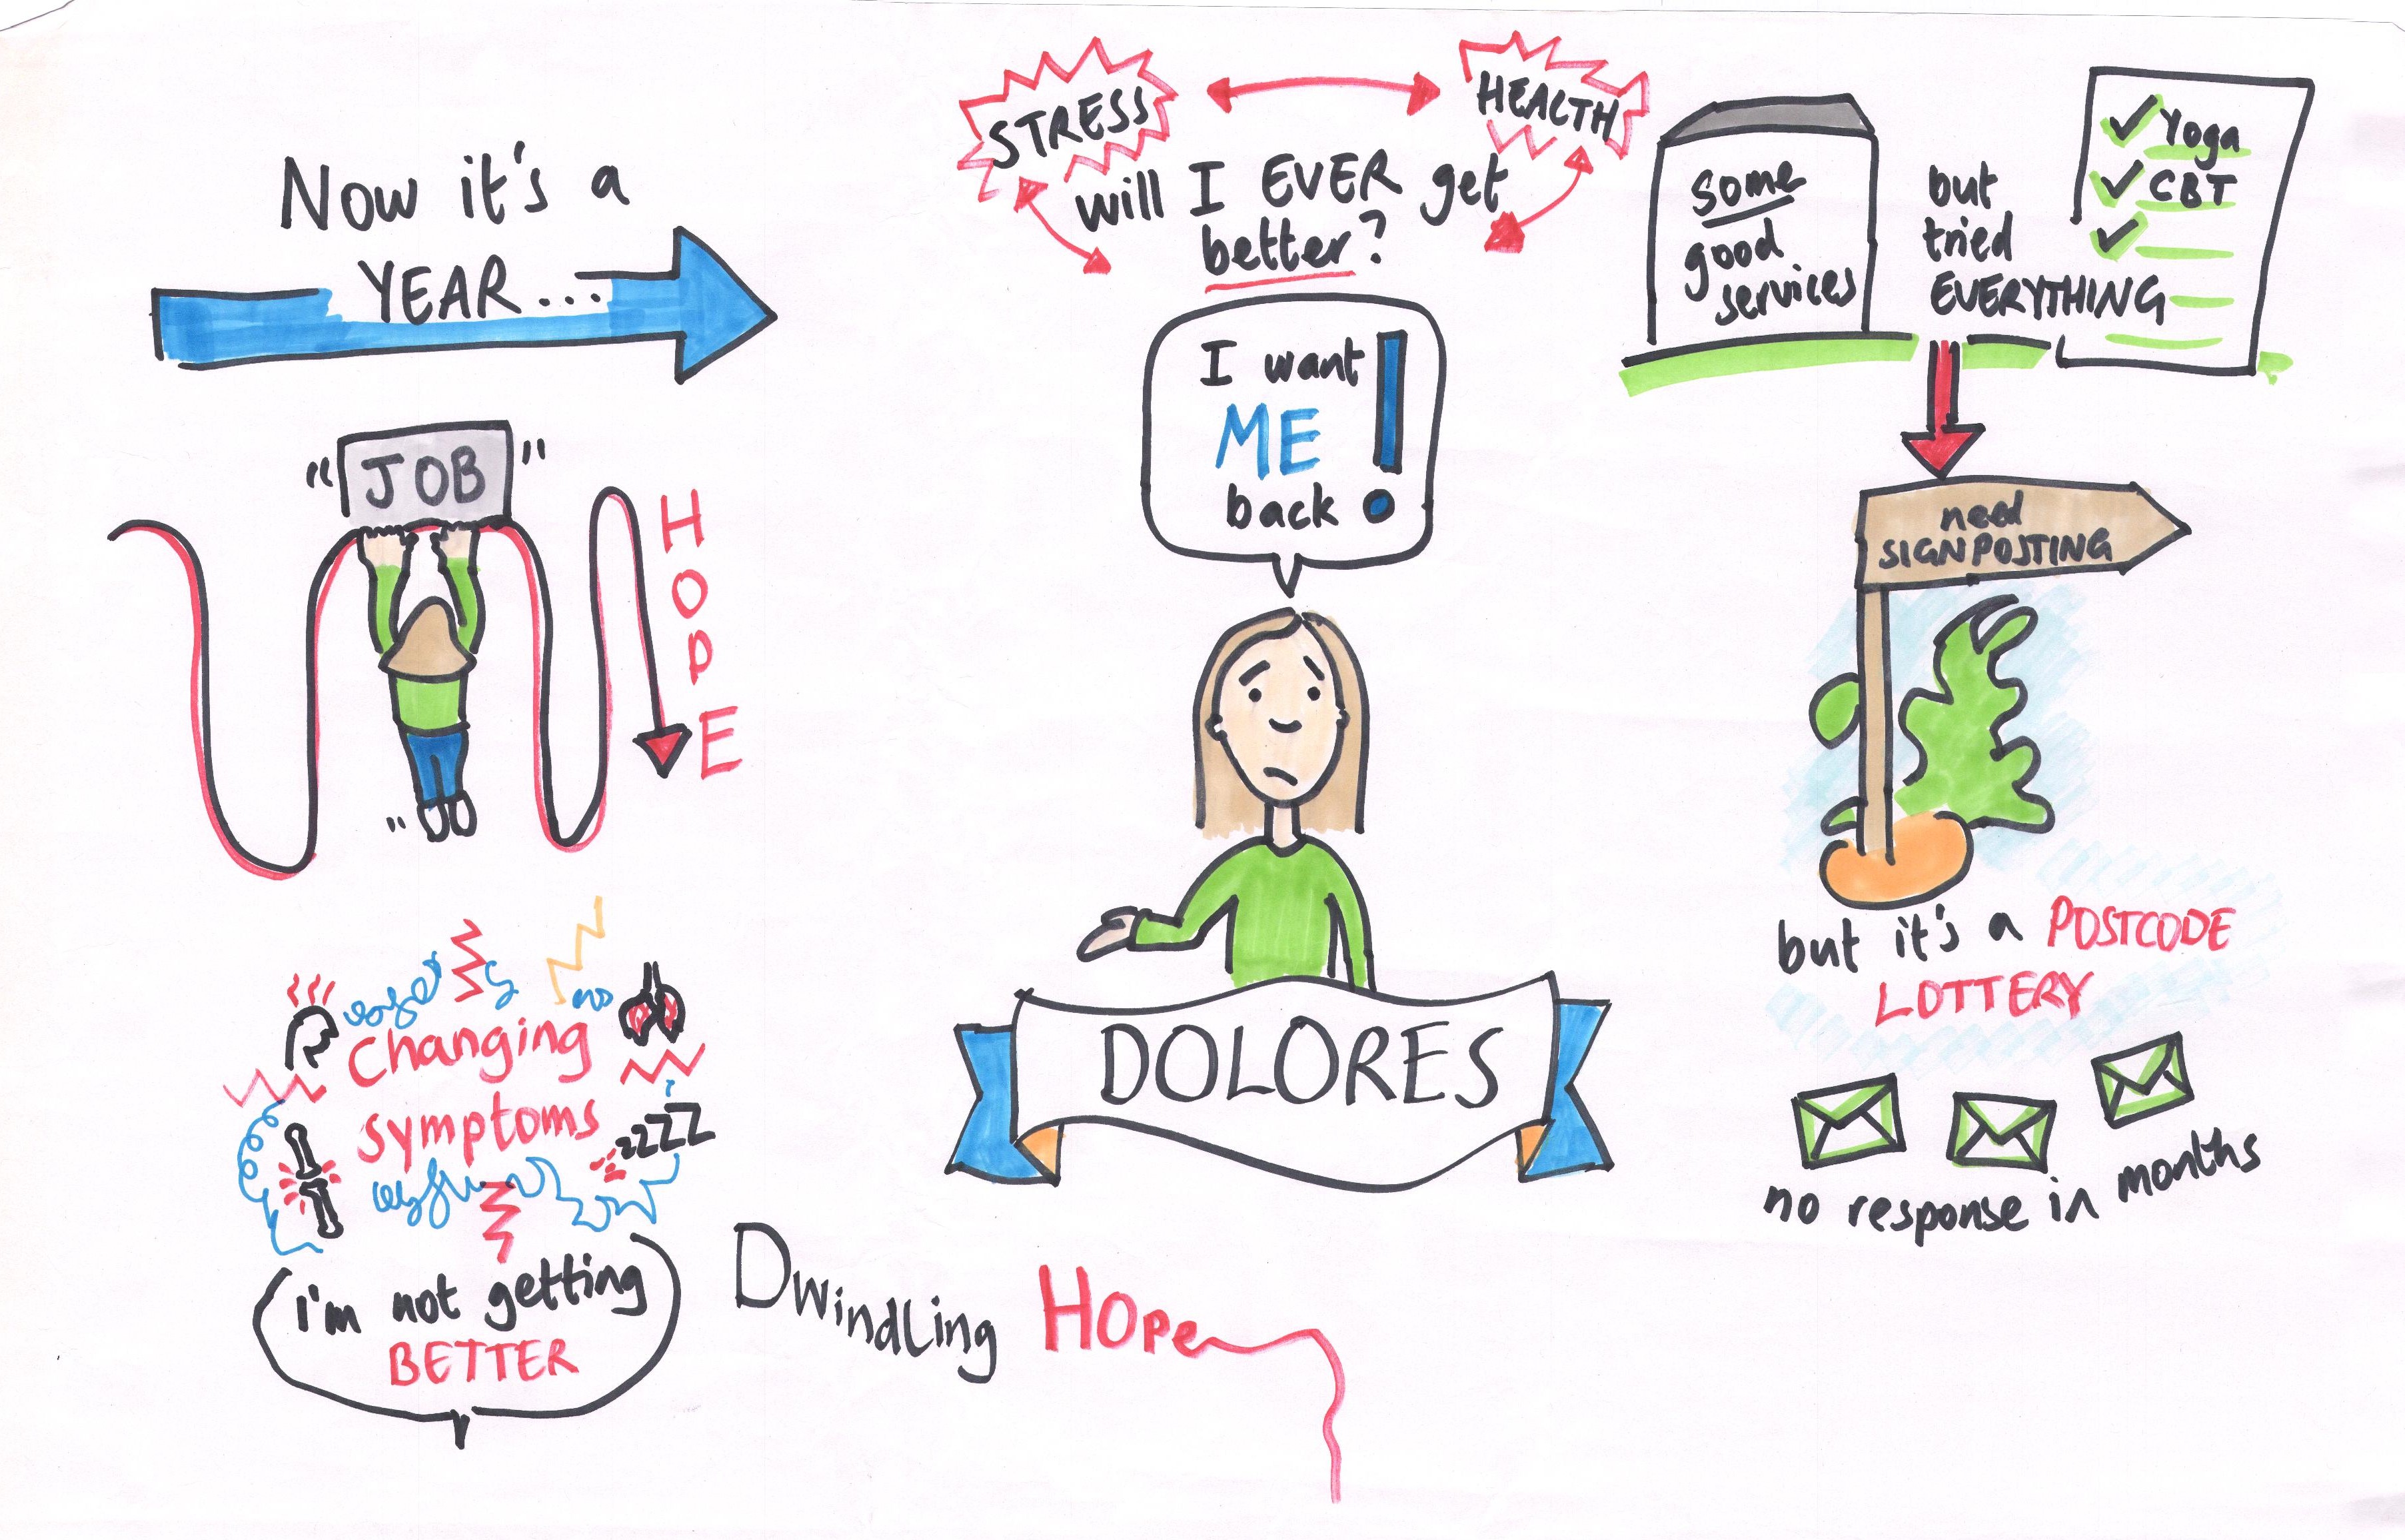 Now it's a
YEAR...
"JOB"
HOPE
Changing
symptoms
zzzzz
i'm not getting
BETTER
Dwindling Hope
STRESS
HEALTH
will I EVER get
better?
I want
ME
back !
DOLORES
some
good
services
but
tried
EVERYTHING
Yoga
CBT
need
SIGNPOSTING
but it's a POSTCODE
LOTTERY
no response in months